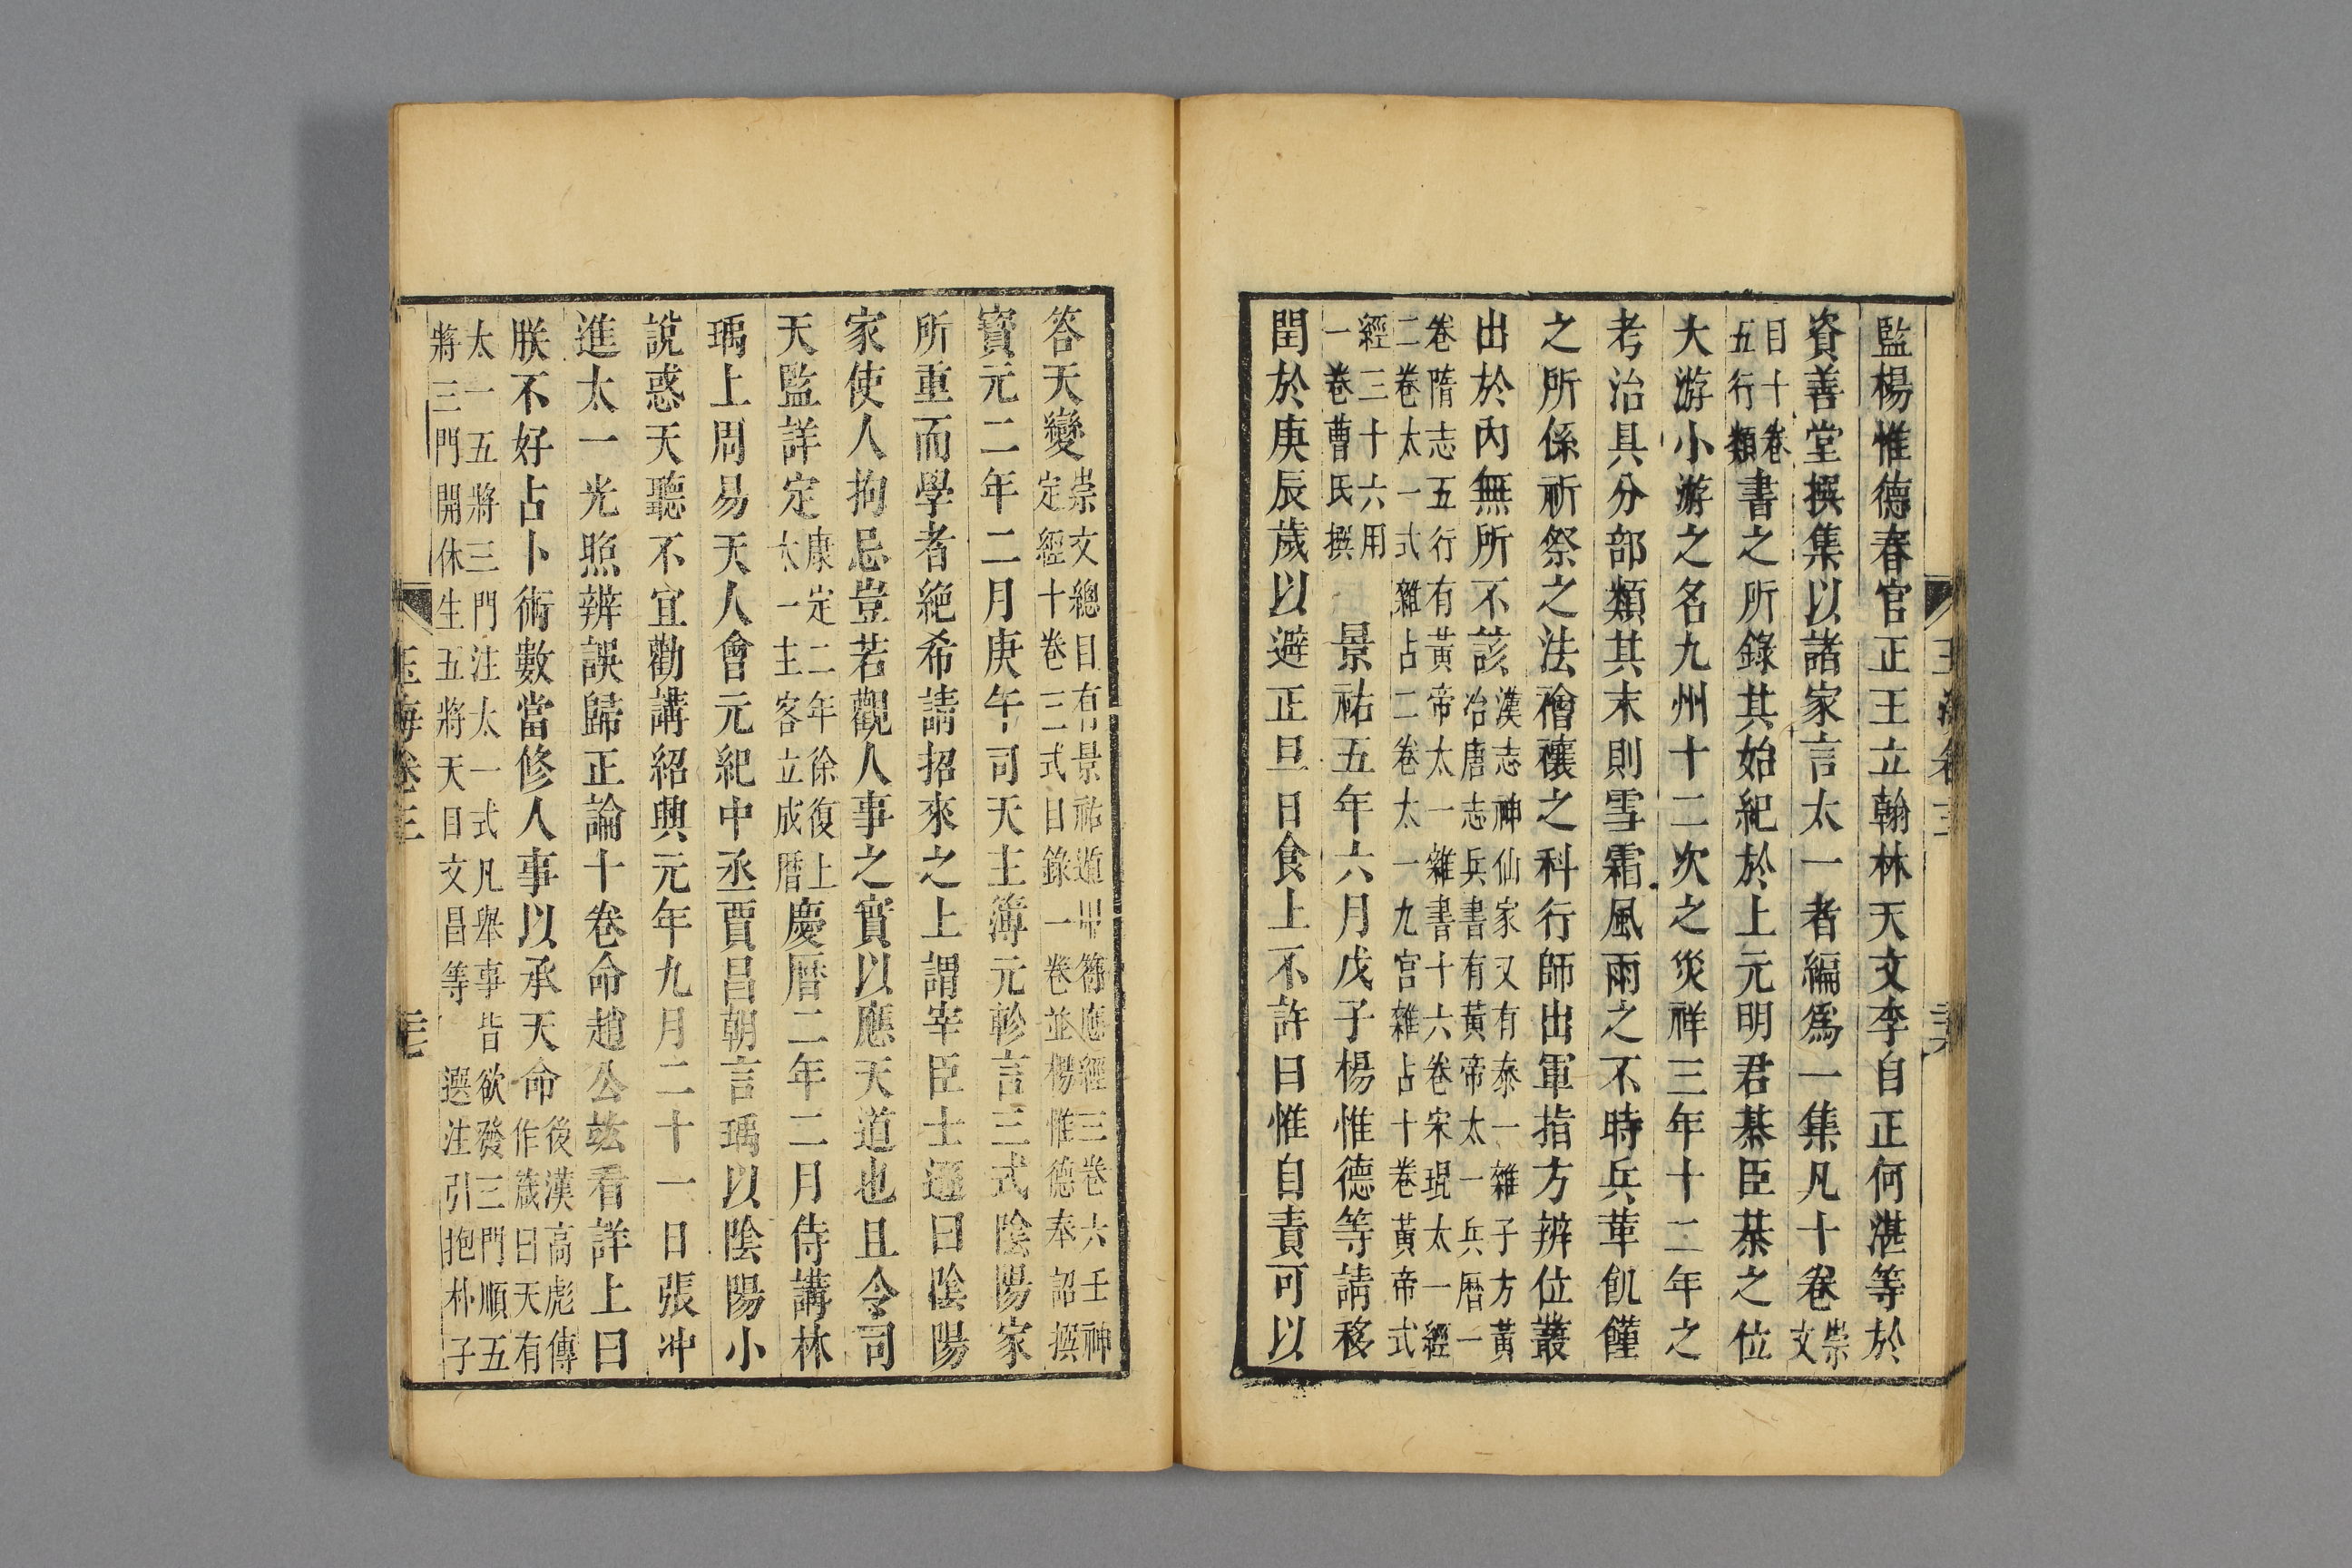 監楊惟德春官正王立翰林天文李自正何湛等於
資善堂撰集以諸家言太一者編爲一集凡十卷崇文
目十卷五行類書之所錄其始紀於上元明君綦臣綦之位
大游小游之名九州十二次之災祥三年十二年之
考治具分部類其末則雪霜風雨之不時兵革飢饉
之所係祈祭之法襘禳之科行師出軍指方辨位叢
出於內無所不該漢志神仙家又有泰一雜子方黃冶唐志兵書有黃帝太一兵曆一
卷隋志五行有黃帝太一雜書十六卷宋琨太一經二卷太一式雜占二卷太一九宮雜占十卷黃帝式
經三十六用一卷曹氏撰景祐五年六月戊子楊惟德等請移
閏於庚辰歲以避正旦日食上不許曰惟自責可以
玉海卷三
答天變崇文總目有景祐遁甲符應經三卷六壬神定經十卷三式目錄一卷並楊惟德奉詔撰
寶元二年二月庚午司天主簿元軫言三式陰陽家
所重而學者絶希請招來之上謂宰臣士遜曰陰陽
家使人拘忌豈若觀人事之實以應天道也且令司
天監詳定康定二年徐復上太一主客立成曆慶曆二年二月侍講林
瑀上周易天人會元紀中丞賈昌朝言瑀以陰陽小
說惑天聽不宜勸講紹興元年九月二十一日張冲
進太一光照辨誤歸正論十卷命趙公竑看詳上曰
朕不好占卜術數當修人事以承天命後漢高彪傳作箴曰天有
太一五將三門注太一式凡舉事皆欲發三門順五將三門開休生五將天目文昌等選注引抱朴子
玉海卷三